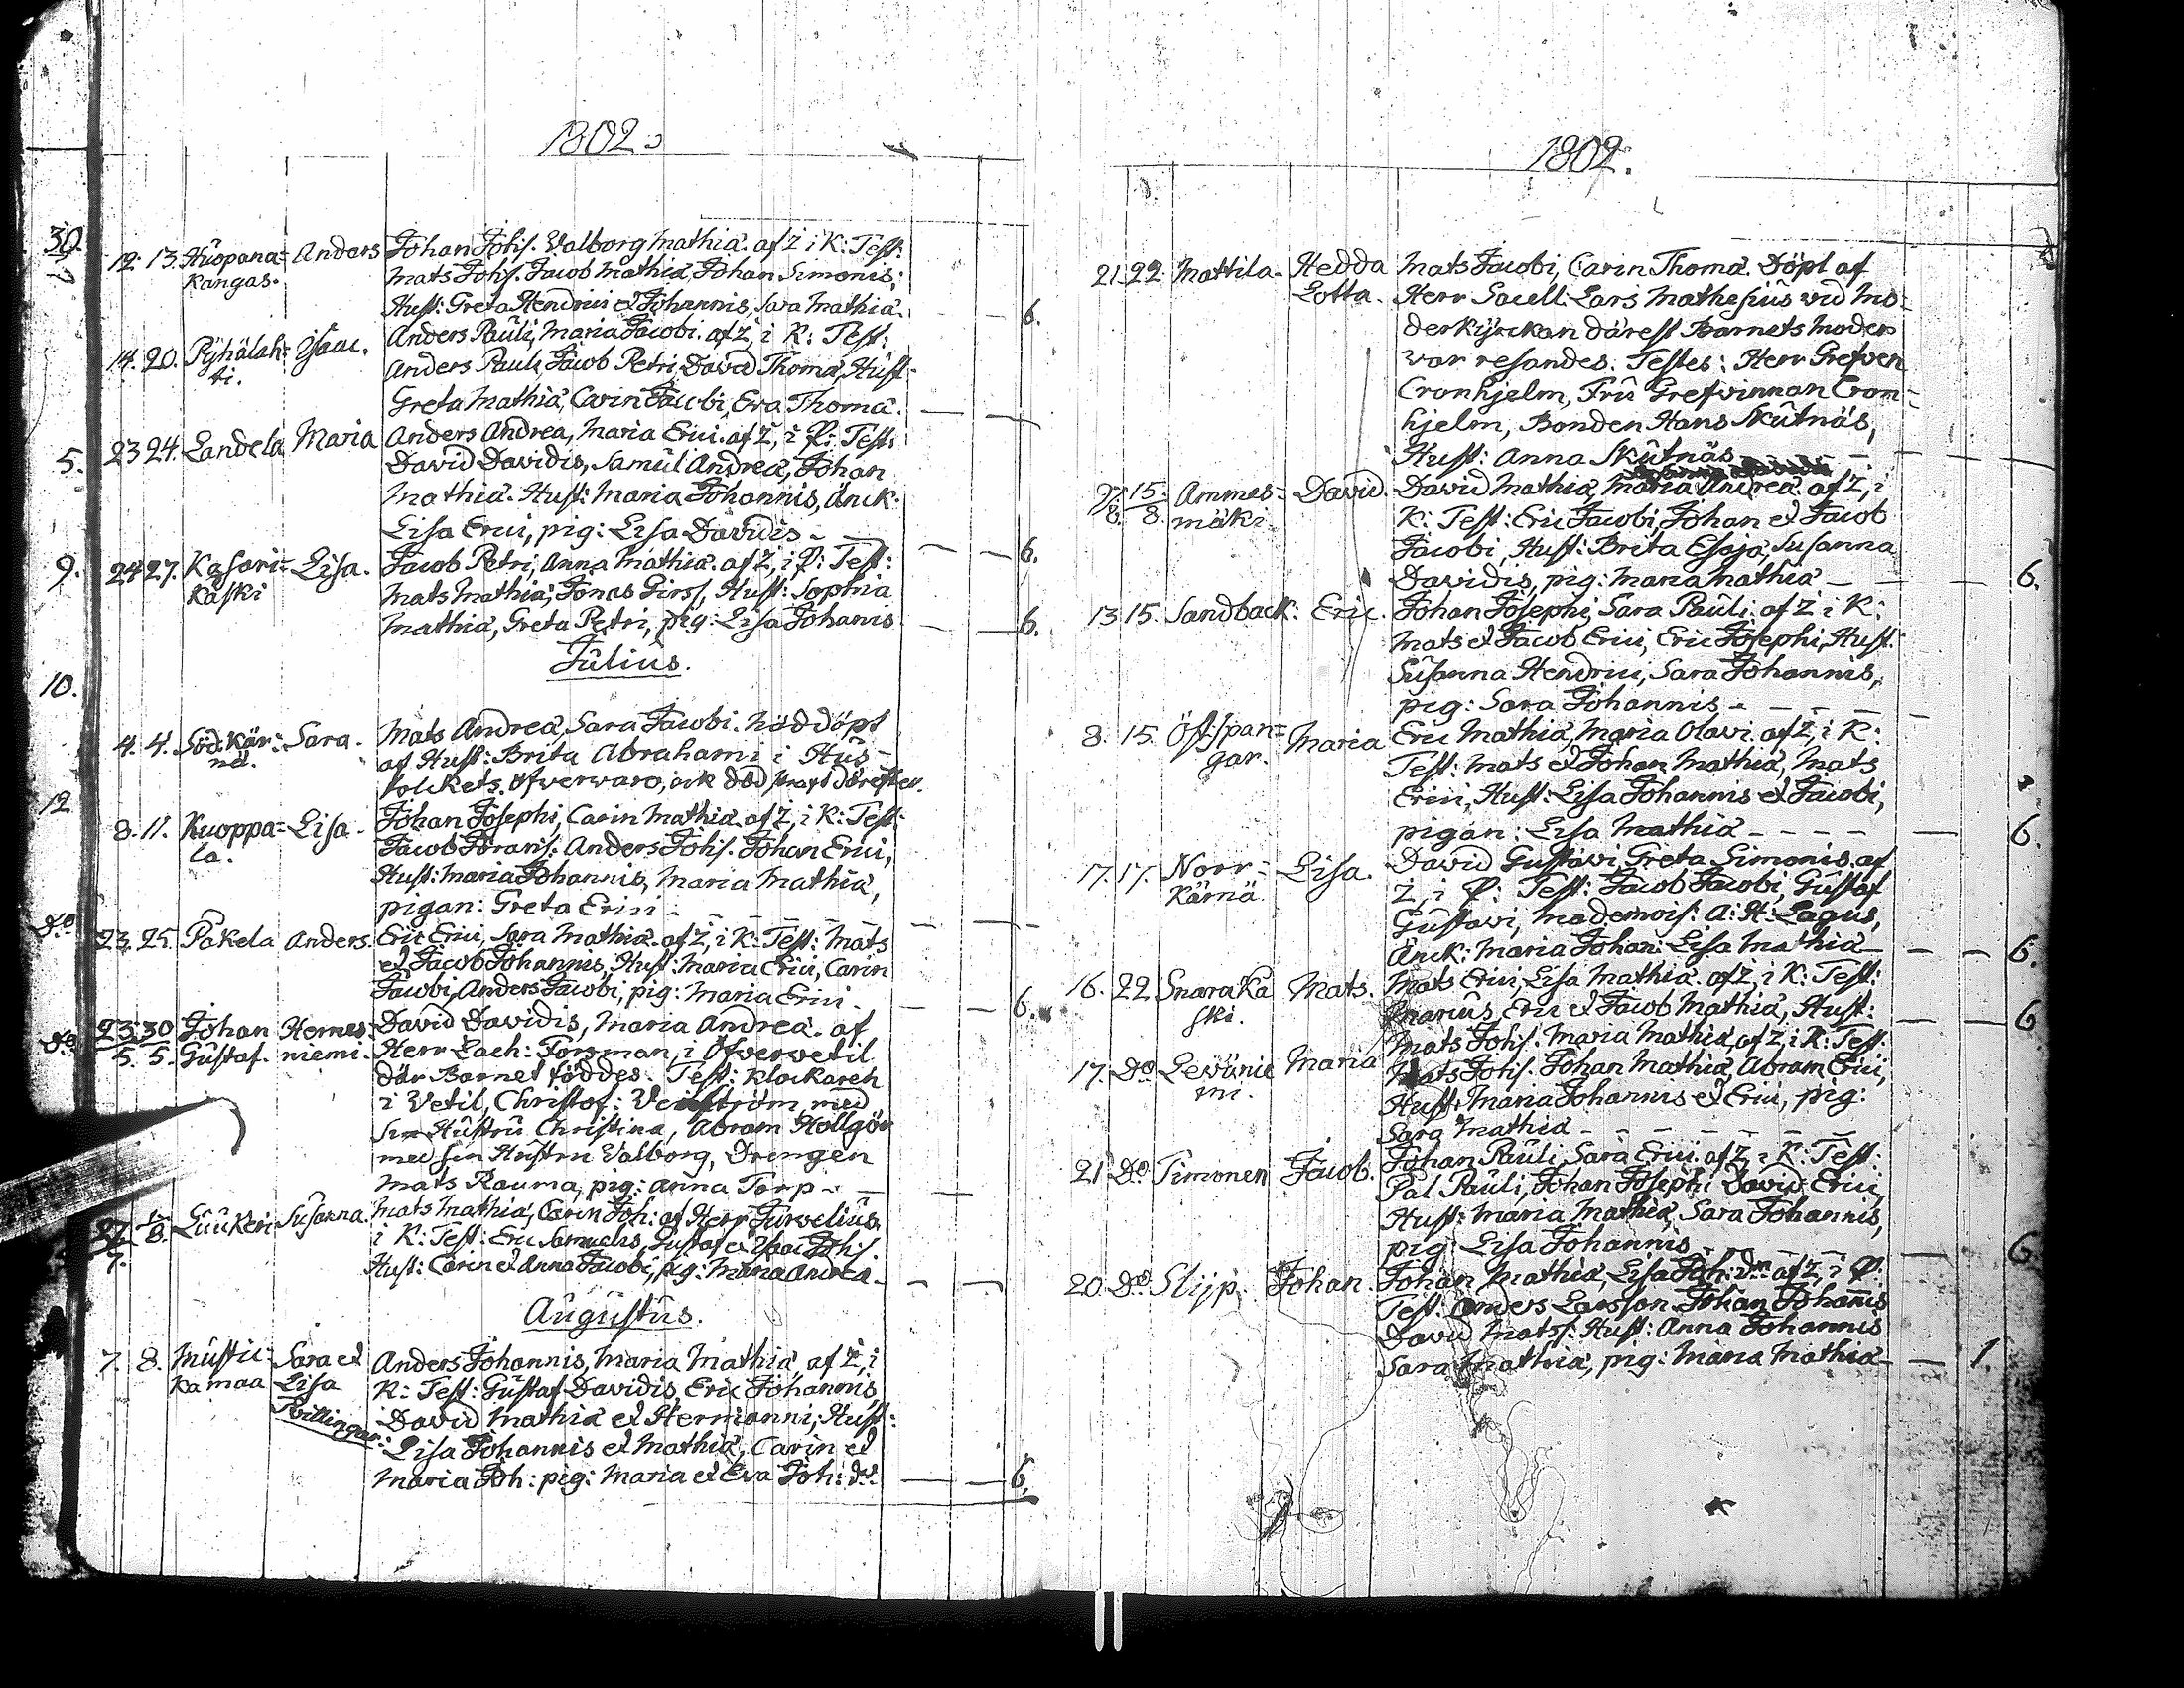 1802.
30.
12. 13. Huopana= Anders Johan Johs. Valborg Mathiæ. af Z i K: Test:
kangas. Mats Johs. Jacob Mathiæ, Johan Simonis;
Hust: Greta Hendrici et Johannis, Sara Mathiæ. 6.
14. 20. Pyhälah= Isaac. Anders Pauli, Maria Jacobi. af Z, i K: Test:
ti. Anders Pauli, Jacob Petri, David Thomæ, Hust:
Greta Mathiæ, Carin Jacobi, Eva Thomæ.
5. 23 24. Landela Maria Anders Andreæ, Maria Erici. af Z, i P: Test:
David Davidis, Samul Andreæ, Johan
Mathiæ. Hust: Maria Johannis, Änck:
Lisa Erici, pig: Lisa Davidis 6.
9. 24 27. Kasari= Lisa. Jacob Petri, Anna Mathiæ. af Z, i P: Test:
kaski Mats Mathiæ, Jonas Girss, Hust: Sophia
Mathiæ, Greta Petri, pig: Lisa Johanis 6.
Julius.
10.
4. 4. Söd: Kär= Sara. Mats Andreæ, Sara Jacobi. Nöddöpt
nä. af Hust: Brita Abrahami i Hus-
folckets öfverwaro, ock död strax därefter.
12
8. 11. Kuoppa= Lisa. Johan Josephi, Carin Mathiæ af Z, i K: Test:
la. Jacob Anders Johs. Johan Erici,
Hust: Maria Johannis, Maria Mathiæ,
pigan: Greta Erici
Do 23. 25. Pakela Anders. Eric Erici, Sara Mathiæ. af Z, i K: Test: Mats
et Jacob Johannis, Hust: Maria Erici, Carin
Jacobi, Anders Jacobi, pig: Maria Erici. 6.
Do 23. 30 Johan Hernes: David Davidis, Maria Andreæ. af
5. 5. Gustaf. niemi. Herr Zach: Forsman, i Öfvervetil
där Barnet föddes. Test: Klockaren
i Vetil, Christof: med
sin Hustru Christina, Abram Hollgön
med sin Hustru Valborg, Drengen
Mats Rauma, pig: Anna Torp
27 1/8. Luukeri Susanna. Mats Mathiæ, Carin Joh: af Herr Jurvelius
7. i K: Test: Eric Samuelis, Gustaf et Isac Johs.
Hust: Carin et Anna Jacobi, pig: Maria Andreæ
Augustus.
7. 8. Mustic= Sara et Anders Johannis, Maria Mathiæ af Z, i
kamaa Lisa K: Test: Gustaf Davidis, Eric Johannis,
Tvillingar: David Mathiæ et Hermanni, Hust:
Lisa Johannis et Mathiæ, Carin et
Maria Joh: pig: Maria et Eva Joh: dr. 6.
1802.
21. 22. Mattila. Hedda Mats Jacobi, Carin Thomæ. Döpt af
Lotta. Herr Sacell: Lars Mathesius vid Mo-
derkyrckan därest Barnets Moder
var resandes. Testes: Herr Grefven
Cronhjelm, Fru Grefvinnan Cron-
hjelm, Bonden Hans Skutnäs,
Hust: Anna Skutnäs
15. Ammes= David. David Mathiæ, Maria Andreæ. af Z, i
8. 8. mäki. K: Test: Eric Jacobi, Johan et Jacob
Jacobi, Hust: Brita Esajæ, Susanna
Davidis, pig: Maria Mathiæ 6.
13. 15. Sandback: Eric. Johan Josephi, Sara Pauli. af Z i K:
Mats et Jacob Erici, Eric Josephi, Hust:
Susanna Hendrici, Sara Johannis,
pig: Sara Johannis
8. 15. Öst: span= Maria Eric Mathiæ, Maria Olavi. af Z, i K:
gar. Test: Mats et Johan Mathiæ, Mats
Erici, Hust: Lisa Johannis et Jacobi,
pigan: Lisa Mathiæ 6.
17. 17. Norr= Lisa. David Gustavi, Greta Simonis. af
Kärnä. Z, i P: Test: Jacob Jacobi, Gustaf
Gustavi, Mademois: A: H: Lagus,
Änck: Maria Johan: Lisa Mathiæ 6.
16. 22 Snaraka Mats. Mats Erici, Lisa Mathiæ. af Z, i K: Test:
ski. Eric et Jacob Mathiæ, Hust: 6
Mats Johs. Maria Mathiæ, af Z, i K: Test:
17. Do Levänie Maria Mats Johs. Johan Mathiæ, Abram Erici,
mi. Hust: Maria Johannis et Erici, pig:
Sara Mathiæ
21 Do Timonen Jacob. Johan Pauli, Sara Erici. af Z i K: Test:
Pål Pauli, Johan Josephi David Erici,
Hust: Maria Mathiæ, Sara Johannis,
pig: Lisa Johannis 6
20. Do Slijp. Johan. Johan Mathiæ, Lisa Joh: dr. af Z, i P:
Test: Anders Larsson Johan Johannis
David Matss: Hust: Anna Johannis
Sara Mathiæ, pig: Maria Mathiæ 1.